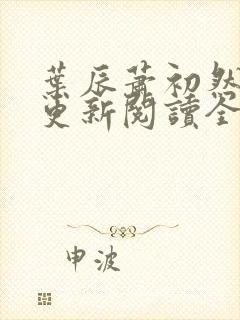 葉辰蕭初然
更新閱讀全
申波